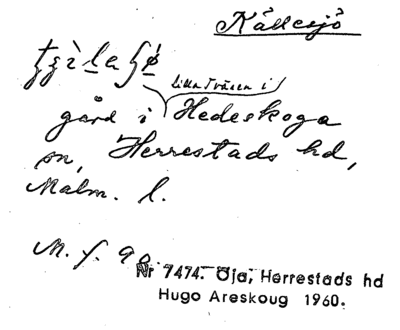 Källesjö
Lilla Tvären i
gård i Hedeskoga
sn, Herrestads hd,
Malm. l.
M. f. 90.
Nr 7474. Öja, Herrestads hd
Hugo Areskoug 1960.